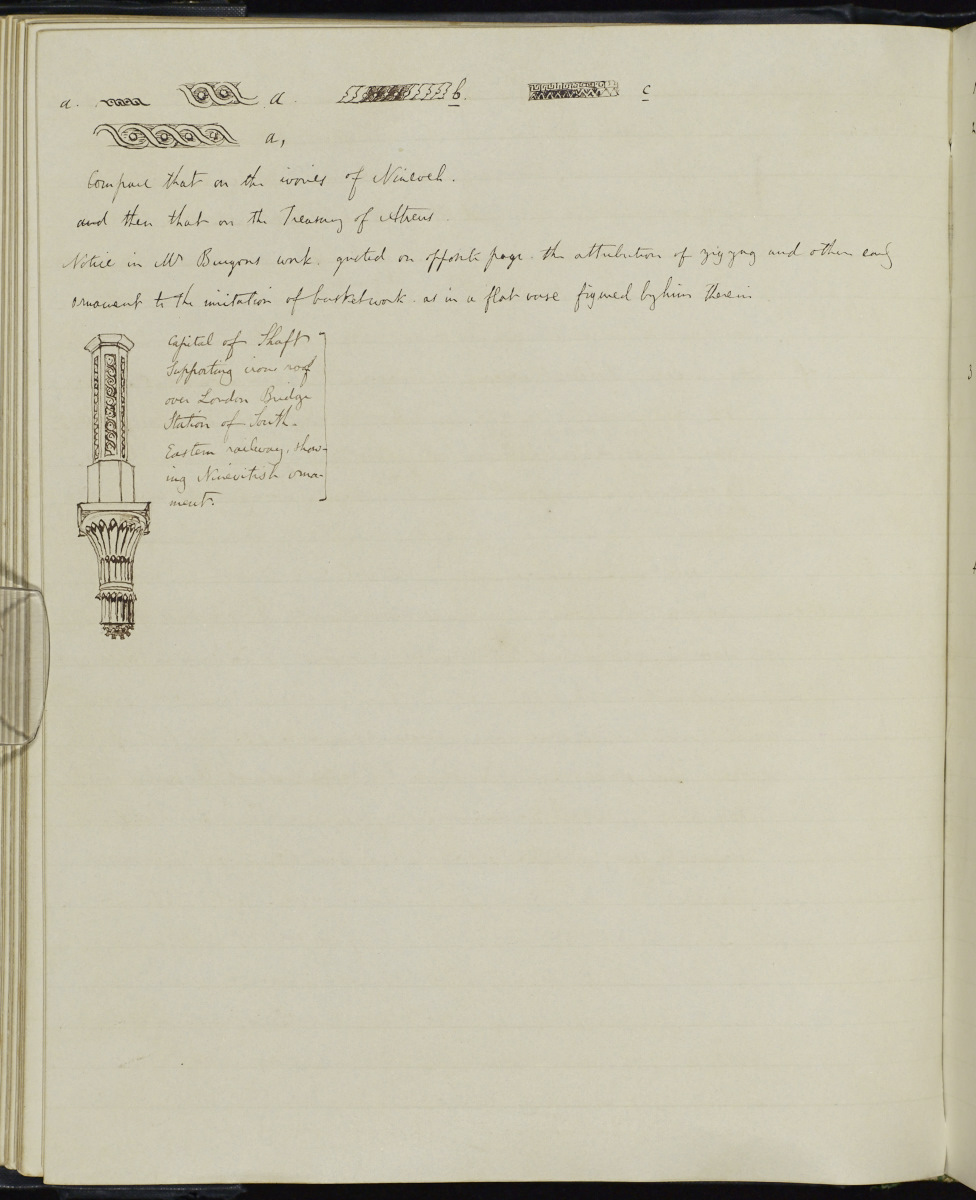 a. a. b. c
a,
Compare that on the ivories of Nineveh.
and then that on the Treasury of Atreus.
Notice in Mr Bunyons work. quoted on opposite page. the attribution of zigzag and other early
ornament to the imitation of basketwork. as in a flat vase figured by him therein
Capital of Shaft
supporting iron roof
over London Bridge
Station of South-
Eastern railway, show-
ing Ninevitish orna-
ment.
3